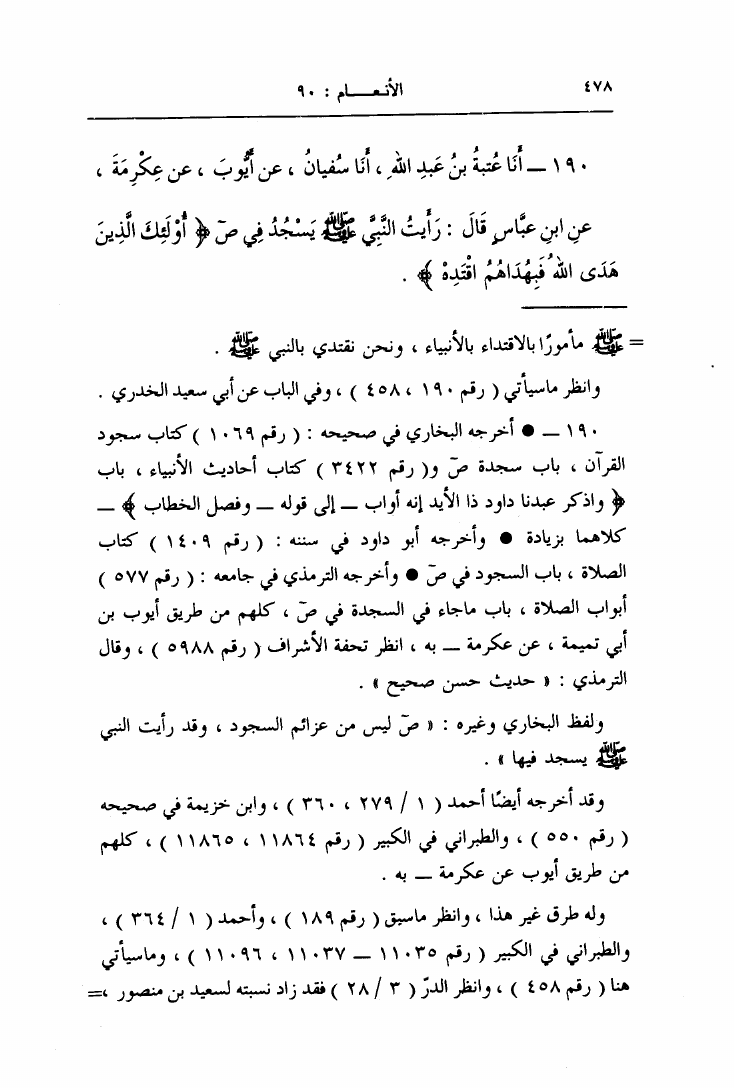 ٤٧٨ الأنعـــام : ٩٠
١٩٠ ـ أَنَا عُتبةُ بنُ عَبدِ اللهِ ، أَنَا سُفيانُ ، عن أَيُّوبَ ، عن عِكْرِمَةَ ،
عنِ ابنِ عبَّاسٍ قَالَ : رَأَيتُ النَّبِيَّ ﷺ يَسْجُدُ فِي صٓ ﴿ أُوْلَئِكَ الَّذِينَ
هَدَى اللهُ فَبِهُدَاهُمُ اقْتَدِهْ ﴾ .
= ﷺ مأمورًا بالاقتداء بالأنبياء ، ونحن نقتدي بالنبي ﷺ .
وانظر ماسيأتي ( رقم ١٩٠ ، ٤٥٨ ) ، وفي الباب عن أبي سعيد الخدري .
١٩٠ ـ ● أخرجه البخاري في صحيحه : ( رقم ١٠٦٩ ) كتاب سجود
القرآن ، باب سجدة صٓ و( رقم ٣٤٢٢ ) كتاب أحاديث الأنبياء ، باب
﴿ واذكر عبدنا داود ذا الأيد إنه أواب ـ إلى قوله ـ وفصل الخطاب ﴾ ـ
كلاهما بزيادة ● وأخرجه أبو داود في سننه : ( رقم ١٤٠٩ ) كتاب
الصلاة ، باب السجود في صٓ ● وأخرجه الترمذي في جامعه : ( رقم ٥٧٧ )
أبواب الصلاة ، باب ماجاء في السجدة في صٓ ، كلهم من طريق أيوب بن
أبي تميمة ، عن عكرمة ـ به ، انظر تحفة الأشراف ( رقم ٥٩٨٨ ) ، وقال
الترمذي : « حديث حسن صحيح » .
ولفظ البخاري وغيره : « صٓ ليس من عزائم السجود ، وقد رأيت النبي
ﷺ يسجد فيها » .
وقد أخرجه أيضًا أحمد ( ١ / ٢٧٩ ، ٣٦٠ ) ، وابن خزيمة في صحيحه
( رقم ٥٥٠ ) ، والطبراني في الكبير ( رقم ١١٨٦٤ ، ١١٨٦٥ ) ، كلهم
من طريق أيوب عن عكرمة ـ به .
وله طرق غير هذا ، وانظر ماسبق ( رقم ١٨٩ ) ، وأحمد ( ١ / ٣٦٤ ) ،
والطبراني في الكبير ( رقم ١١٠٣٥ ـ ١١٠٣٧ ، ١١٠٩٦ ) ، وماسيأتي
هنا ( رقم ٤٥٨ ) ، وانظر الدرّ ( ٣ / ٢٨ ) فقد زاد نسبته لسعيد بن منصور ، =